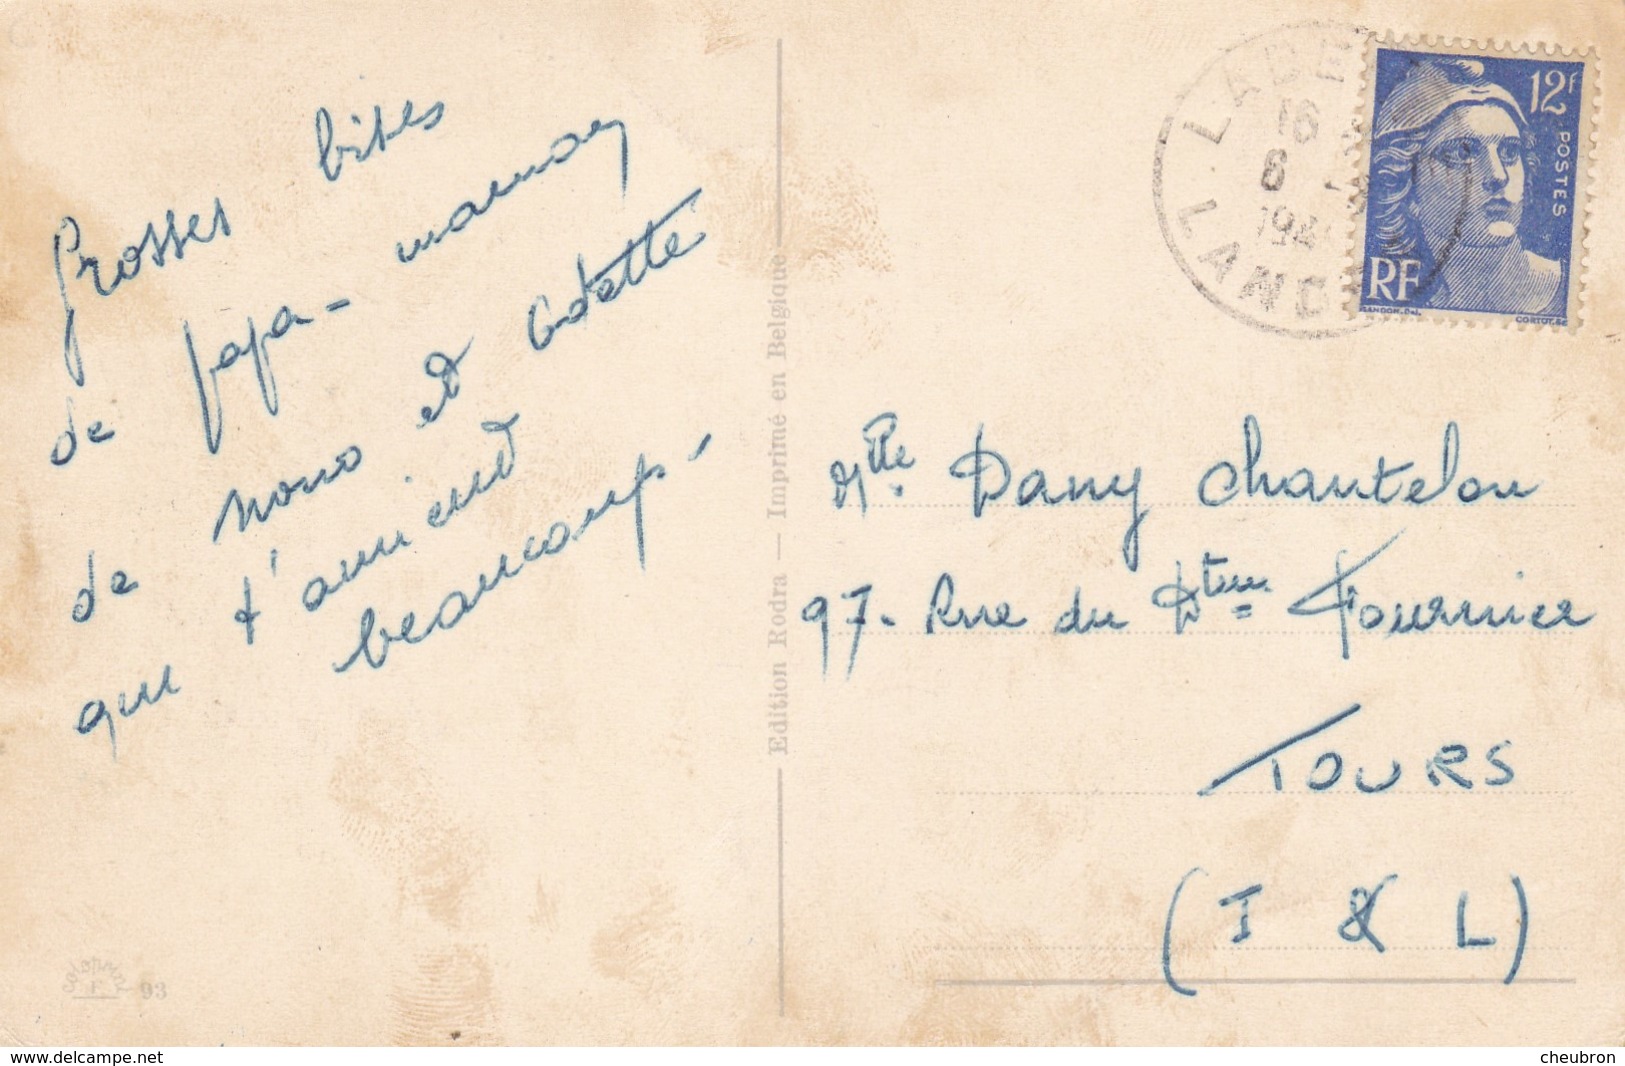 Grosses bises
de papa - maman
de nono et Odette
qui t'aiment
beaucoup -
Edition Rodra — Imprimé en Belgique
93
LABE
16
6
194
LAND
12F
POSTES
RF
GANDON.DEL.
CORTOT.SC
Mlle. Dany Chantelou
97- Rue du Dteur Fournier
TOURS
(I & L)
www.delcampe.net
cheubron